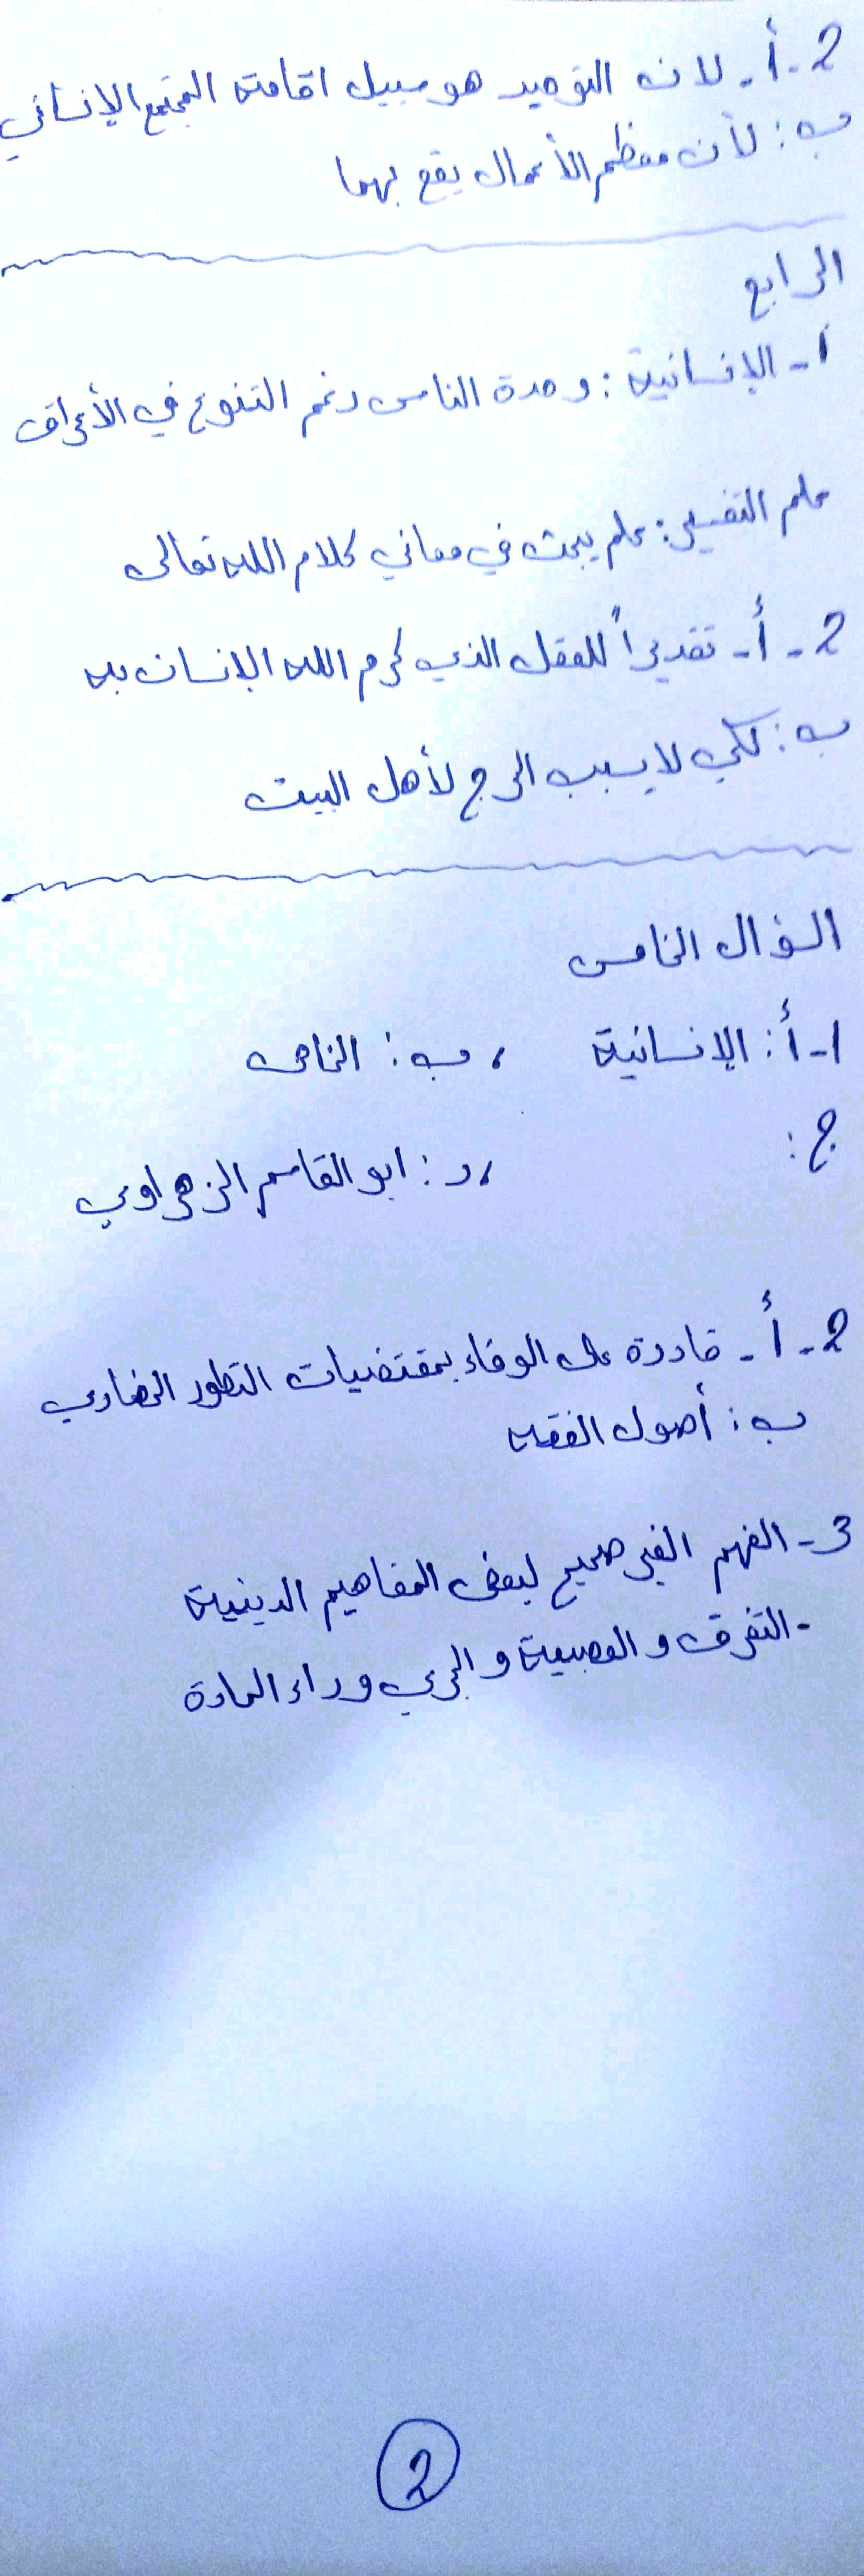 2-أ- لان التوحيد هو سبيل اقامة المجتمع الإنساني
ب: لأن معظم الأعمال يقع بهما
الرابع
1- الإنسانية: وحدة الناس رغم التنوع في الأعراق
علم التفسير: علم يبحث في معاني كلام الله تعالى
2-أ- تقديراً للعقل الذي كرم الله الإنسان به
ب: لكي لا يسبب الحرج لأهل البيت
السؤال الخامس
1-أ: الإنسانية ، ب: الخاص
ج: ، د: ابو القاسم الزهراوي
2-أ- قادرة على الوفاء بمقتضيات التطور الحضاري
ب: أصول الفقه
3- الفهم الغير صحيح لبعض المفاهيم الدينية
- التفرق و العصبية و الجري وراء المادة
2